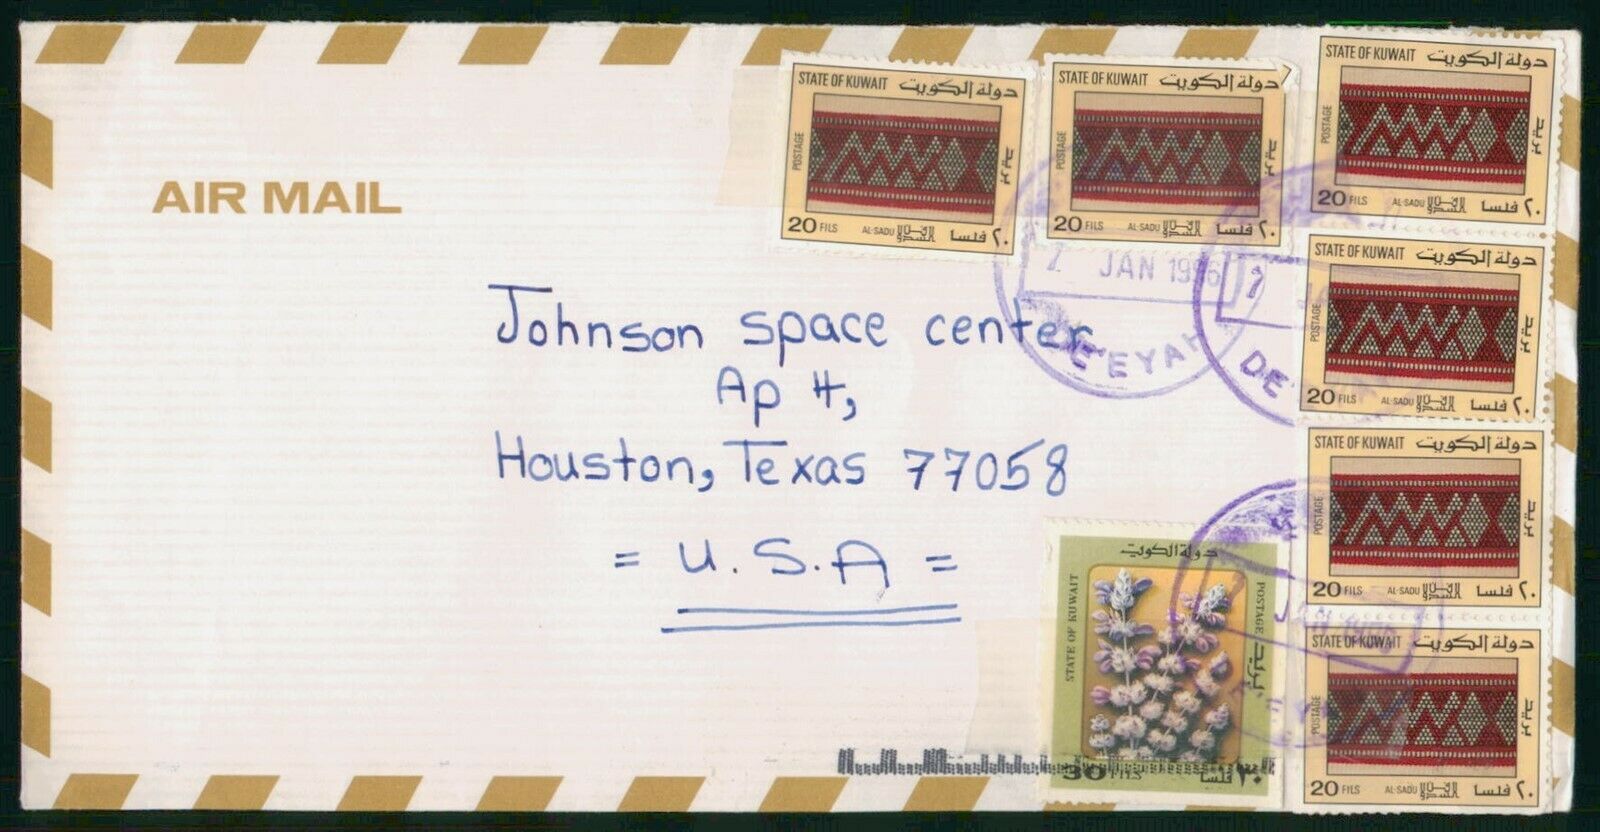 AIR MAIL
STATE OF KUWAIT دولة الكويت
POSTAGE بريد
20 FILS AL-SADU السدو ٢٠ فلسا
STATE OF KUWAIT دولة الكويت
POSTAGE بريد
20 FILS AL-SADU السدو ٢٠ فلسا
STATE OF KUWAIT دولة الكويت
POSTAGE بريد
20 FILS AL-SADU السدو ٢٠ فلسا
7 JAN 1996
DE'EYAH
7
DE
Johnson space center
Ap H,
Houston, Texas 77058
= U.S.A =
STATE OF KUWAIT دولة الكويت
POSTAGE بريد
20 FILS AL-SADU السدو ٢٠ فلسا
STATE OF KUWAIT دولة الكويت
POSTAGE بريد
20 FILS AL-SADU السدو ٢٠ فلسا
JAN
دولة الكويت
STATE OF KUWAIT
POSTAGE بريد
30 FILS ٣٠ فلسا
STATE OF KUWAIT دولة الكويت
POSTAGE بريد
20 FILS AL-SADU السدو ٢٠ فلسا